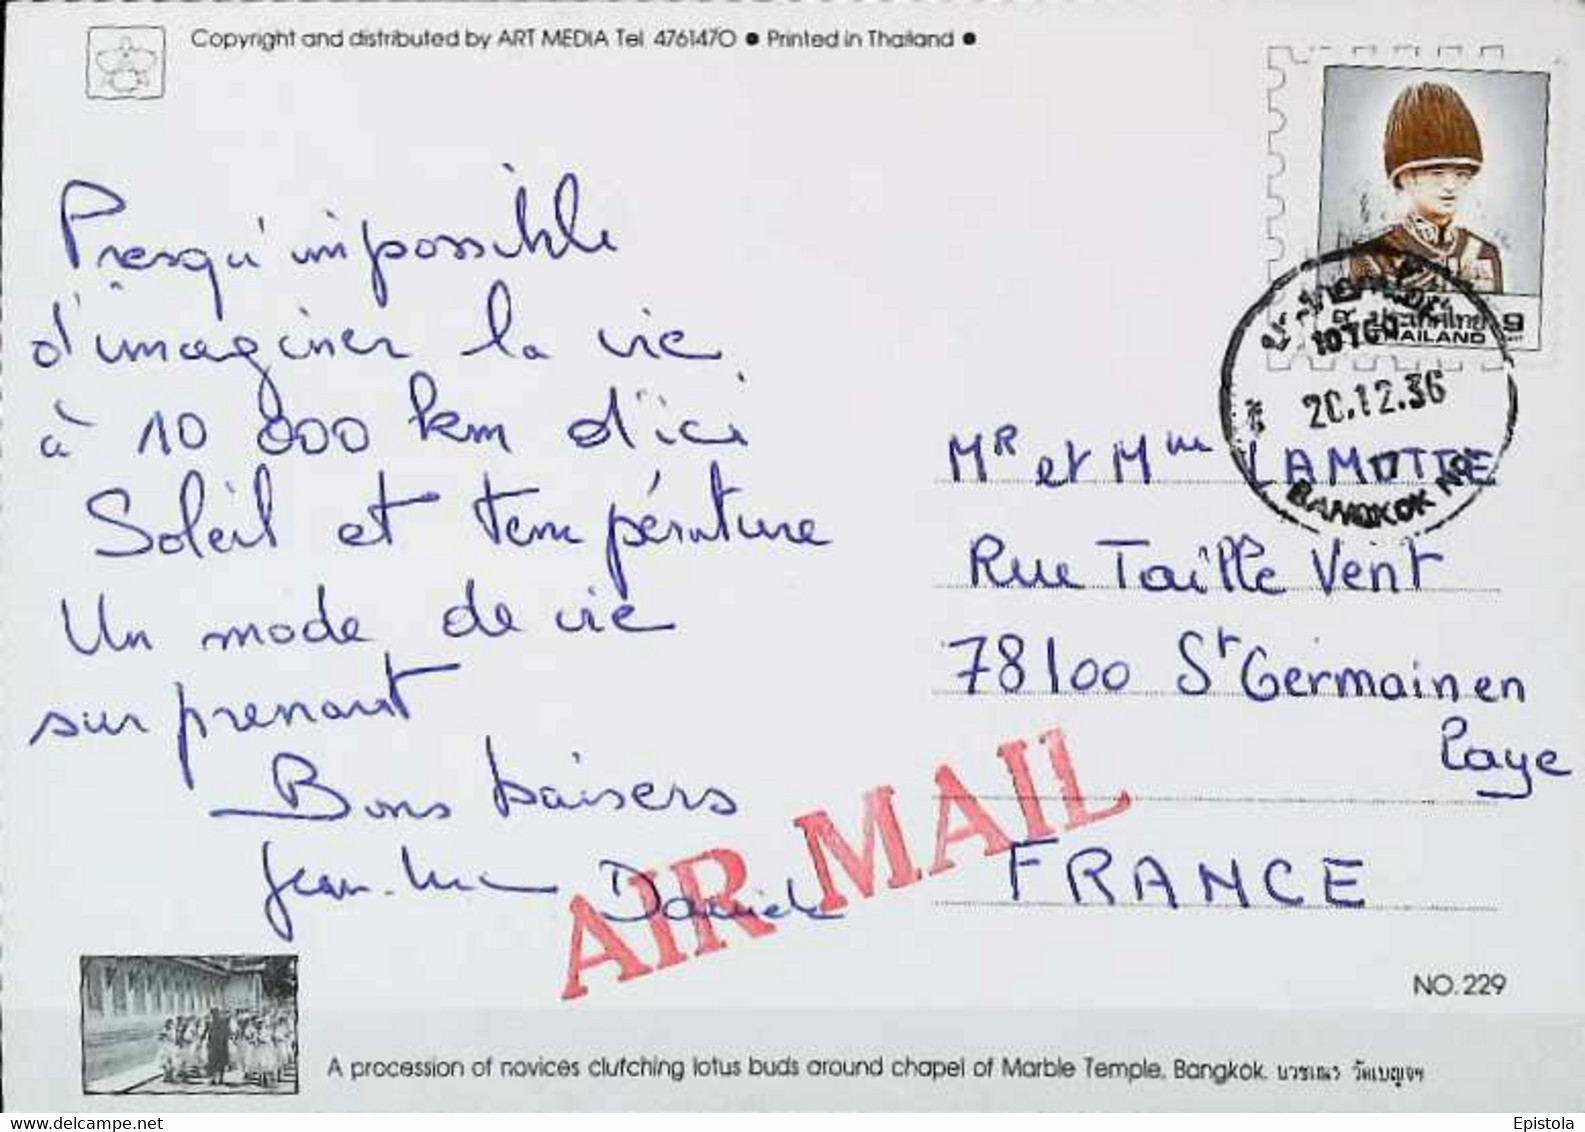 Copyright and distributed by ART MEDIA Tel. 4761470 ● Printed in Thailand ●
Presqu'impossible
d'imaginer la vie
à 10 000 km d'ici
Soleil et température
Un mode de vie
surprenant
Bons baisers
Jean-Luc Danièle
ประเทศไทย 9
THAILAND
20.12.36
BANGKOK
AIR MAIL
MR et Mme LAMOTTE
Rue Taille Vent
78100 St Germain en
Laye
FRANCE
NO. 229
A procession of novices clutching lotus buds around chapel of Marble Temple, Bangkok. บวชเณร วัดเบญจฯ
delcampe.net
Epistola